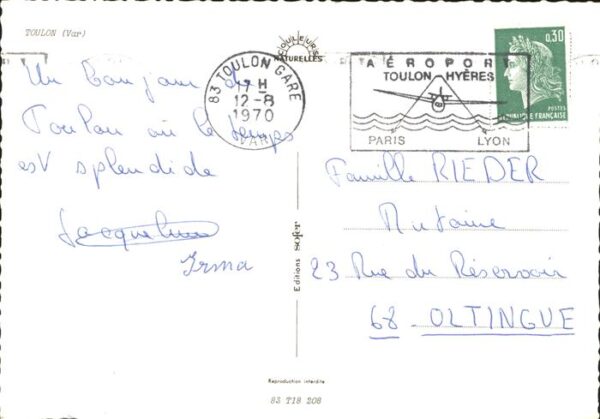 TOULON (Var)
COULEURS
NATURELLES
83 TOULON GARE
17 H
12-8
1970
VAR
AÉROPORT
TOULON HYÈRES
PARIS LYON
0,30
POSTES
RÉPUBLIQUE FRANÇAISE
Un bonjour de
Toulon où le temps
est splendide
Jacqueline
Irma
Famille RIEDER
23 Rue du Réservoir
68 - OLTINGUE
Editions sofer
Reproduction interdite
83 T18 208